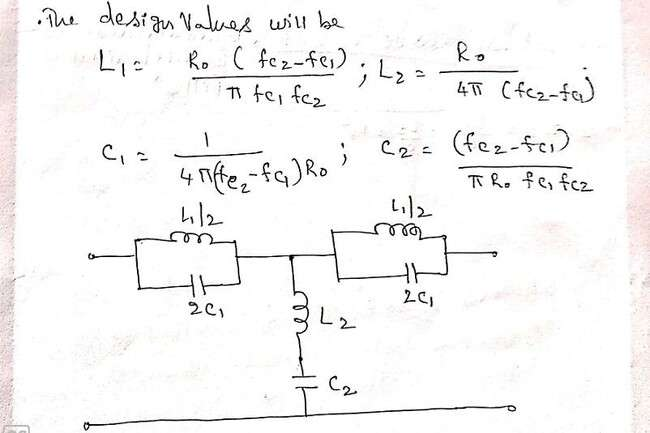 .The design Values will be
L₁ = R₀ (fc₂-fc₁) / π fc₁ fc₂ ; L₂ = R₀ / 4π (fc₂-fc₁)
C₁ = 1 / 4π(fc₂-fc₁)R₀ ; C₂ = (fc₂-fc₁) / π R₀ fc₁ fc₂
L₁/2 L₁/2
2C₁ 2C₁
L₂
C₂